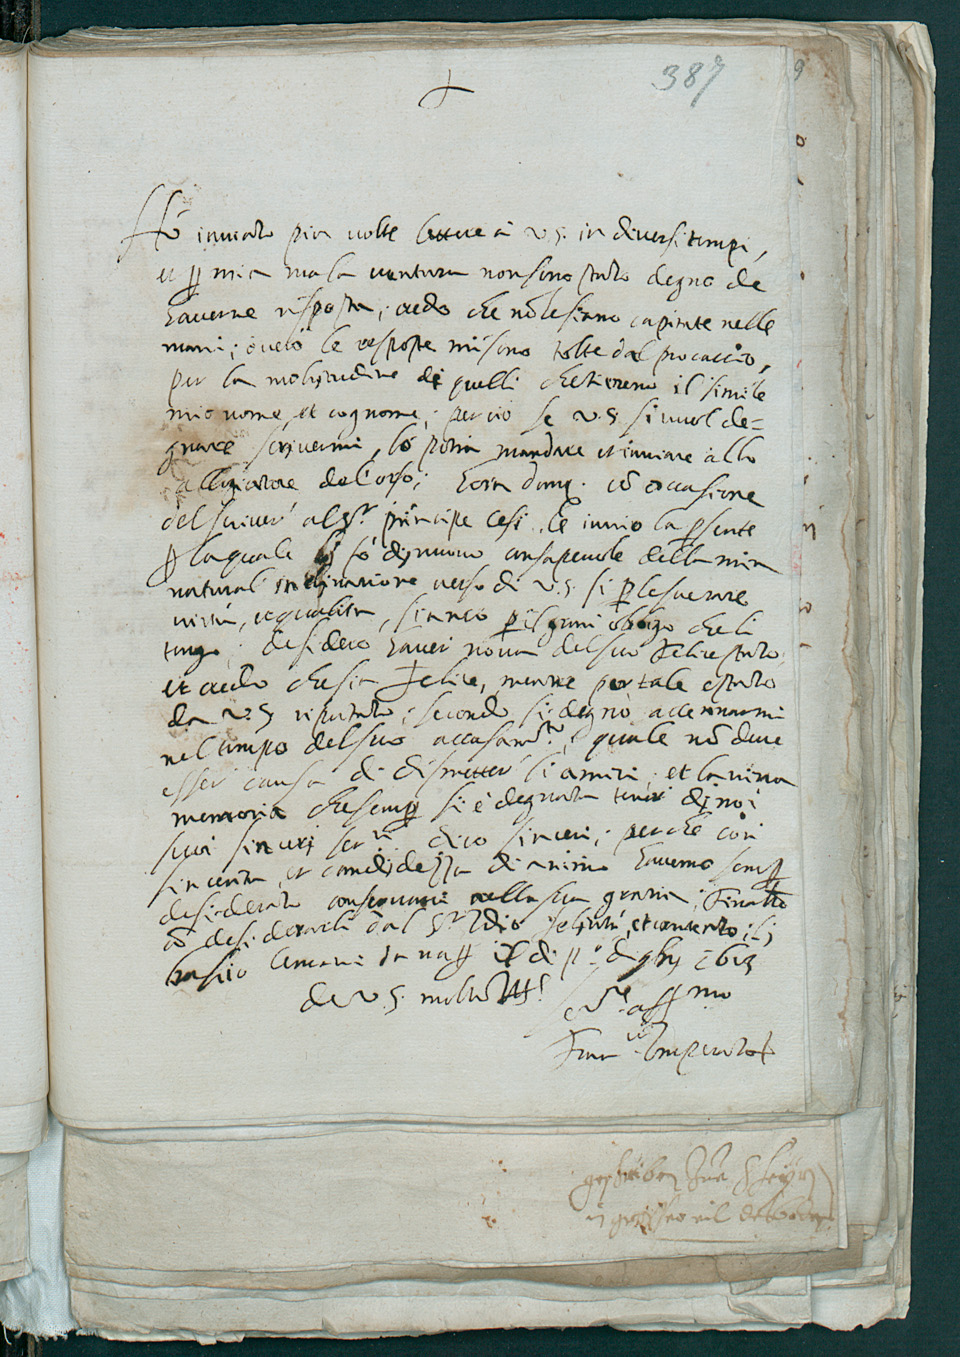 387
9
Hò inviato più volte lettere à V.S. in diversi tempi,
et p mia mala ventura non sono stato degno de
haverne risposta; credo che nõ le siano capitate nelle
mani; overo le resposte mi sono tolte dal procaccio,
per la moltitudine di quelli che tieneno il simile
mio nome, et cognome; perciò se V.S. si vuol de=
gnare scrivermi, lo potrà mandare et inviare allo
alloggiatore del'orso; hora dunq. cõ occasione
del scriver' al Sr. principe Cesi le invio la psente
p la quale li fò di nuovo consapevole della mia
natural' inclinatione verso di V.S. sì p le sue rare
virtù, et qualità, sì anco p il gran obligo che li
tengo; desidero haver nova del suo felice stato
et credo che sia felice, mentre per tale è stato
da V.S. reputato; secondo si degnò accennarmi
nel tempo del suo accasamto., quale nõ deve
esser causa di dismetter li amici, et la viva
memoria che semp si è degnata tener di noi
suoi sinceri serri. dico sinceri; perche con
sincerità, et candidezza di animo havemo semp
desiderato conservarci nella sua gratia;
cõ desiderarli dal Sr. Idio felicità, et contento; li
bascio le mani da nap il di po. di 9bre 1613
de V.S. molto Ill.
sre. affmo
Franco. Imperato